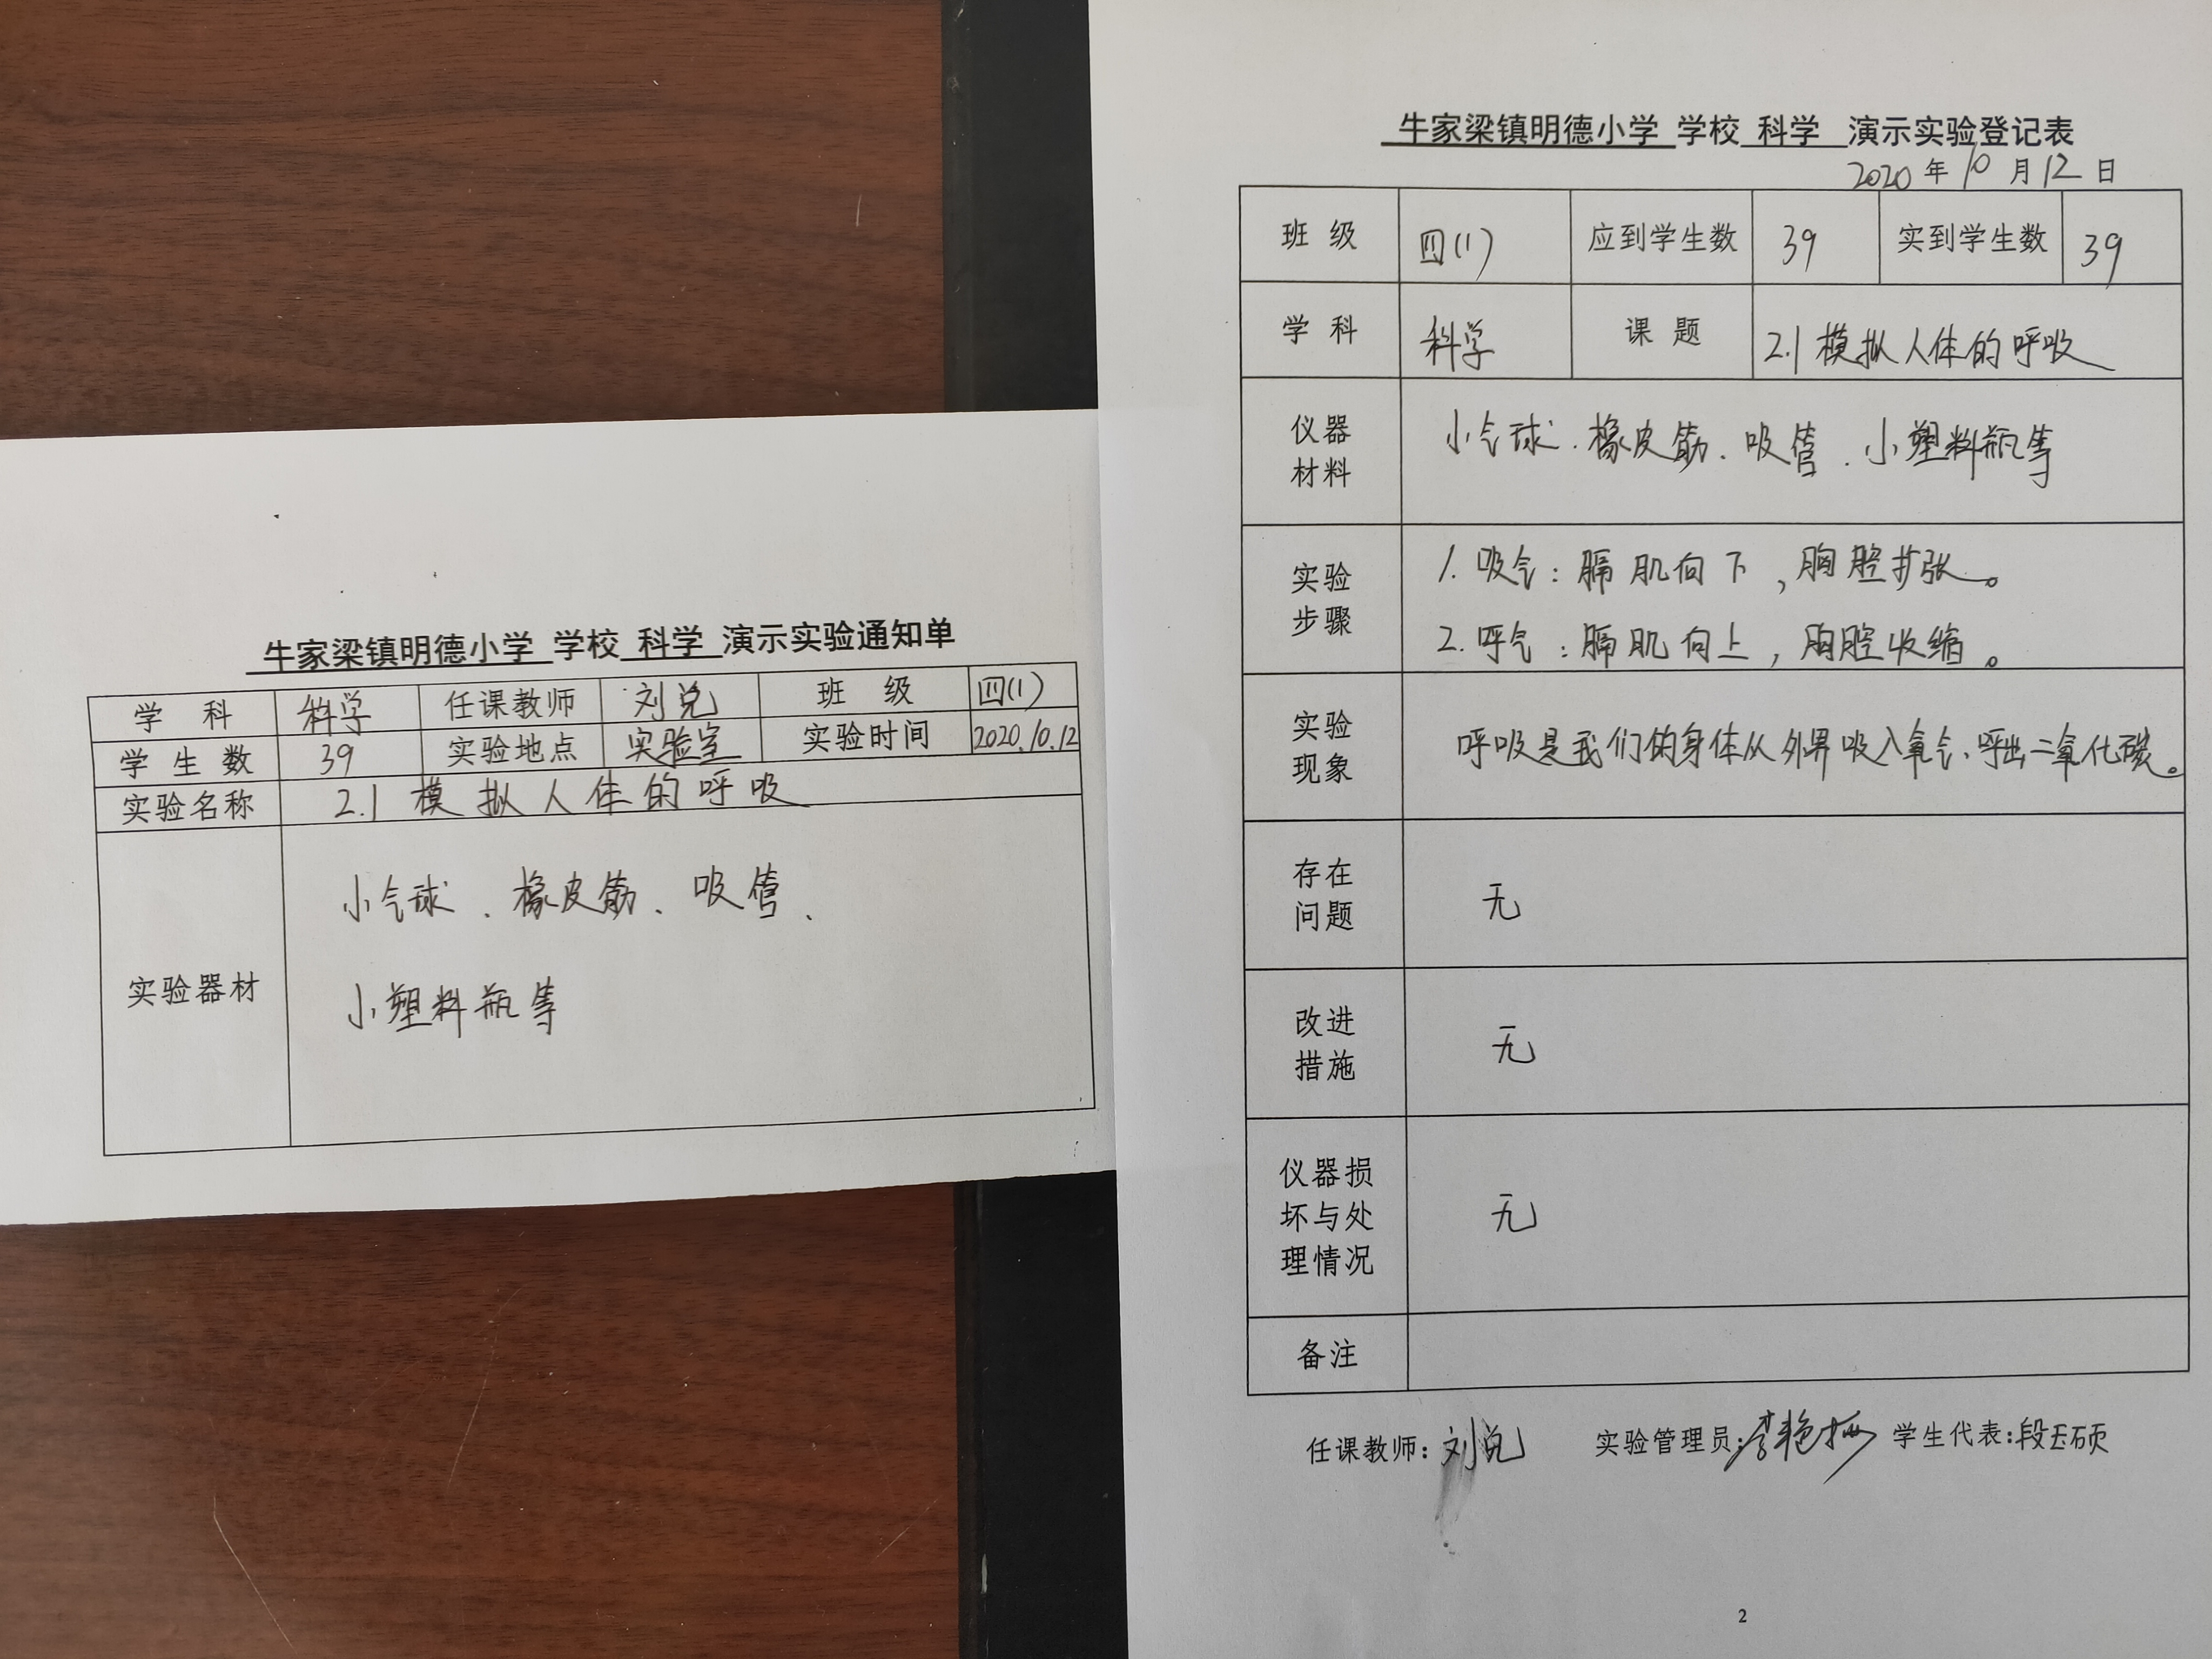 牛家梁镇明德小学 学校 科学 演示实验通知单
学 科 科学 任课教师 刘兑 班 级 四(1)
学 生 数 39 实验地点 实验室 实验时间 2020.10.12
实验名称 2.1 模拟人体的呼吸
实验器材
小气球、橡皮筋、吸管、
小塑料瓶等
牛家梁镇明德小学 学校 科学 演示实验登记表
2020 年 10 月 12 日
班 级 四(1) 应到学生数 39 实到学生数 39
学 科 科学 课 题 2.1 模拟人体的呼吸
仪器
材料
小气球、橡皮筋、吸管、小塑料瓶等
实验
步骤
1. 吸气:膈肌向下,胸腔扩张。
2. 呼气:膈肌向上,胸腔收缩。
实验
现象
呼吸是我们的身体从外界吸入氧气、呼出二氧化碳。
存在
问题
无
改进
措施
无
仪器损
坏与处
理情况
无
备注
任课教师:刘兑 实验管理员: 学生代表:段玉硕
2